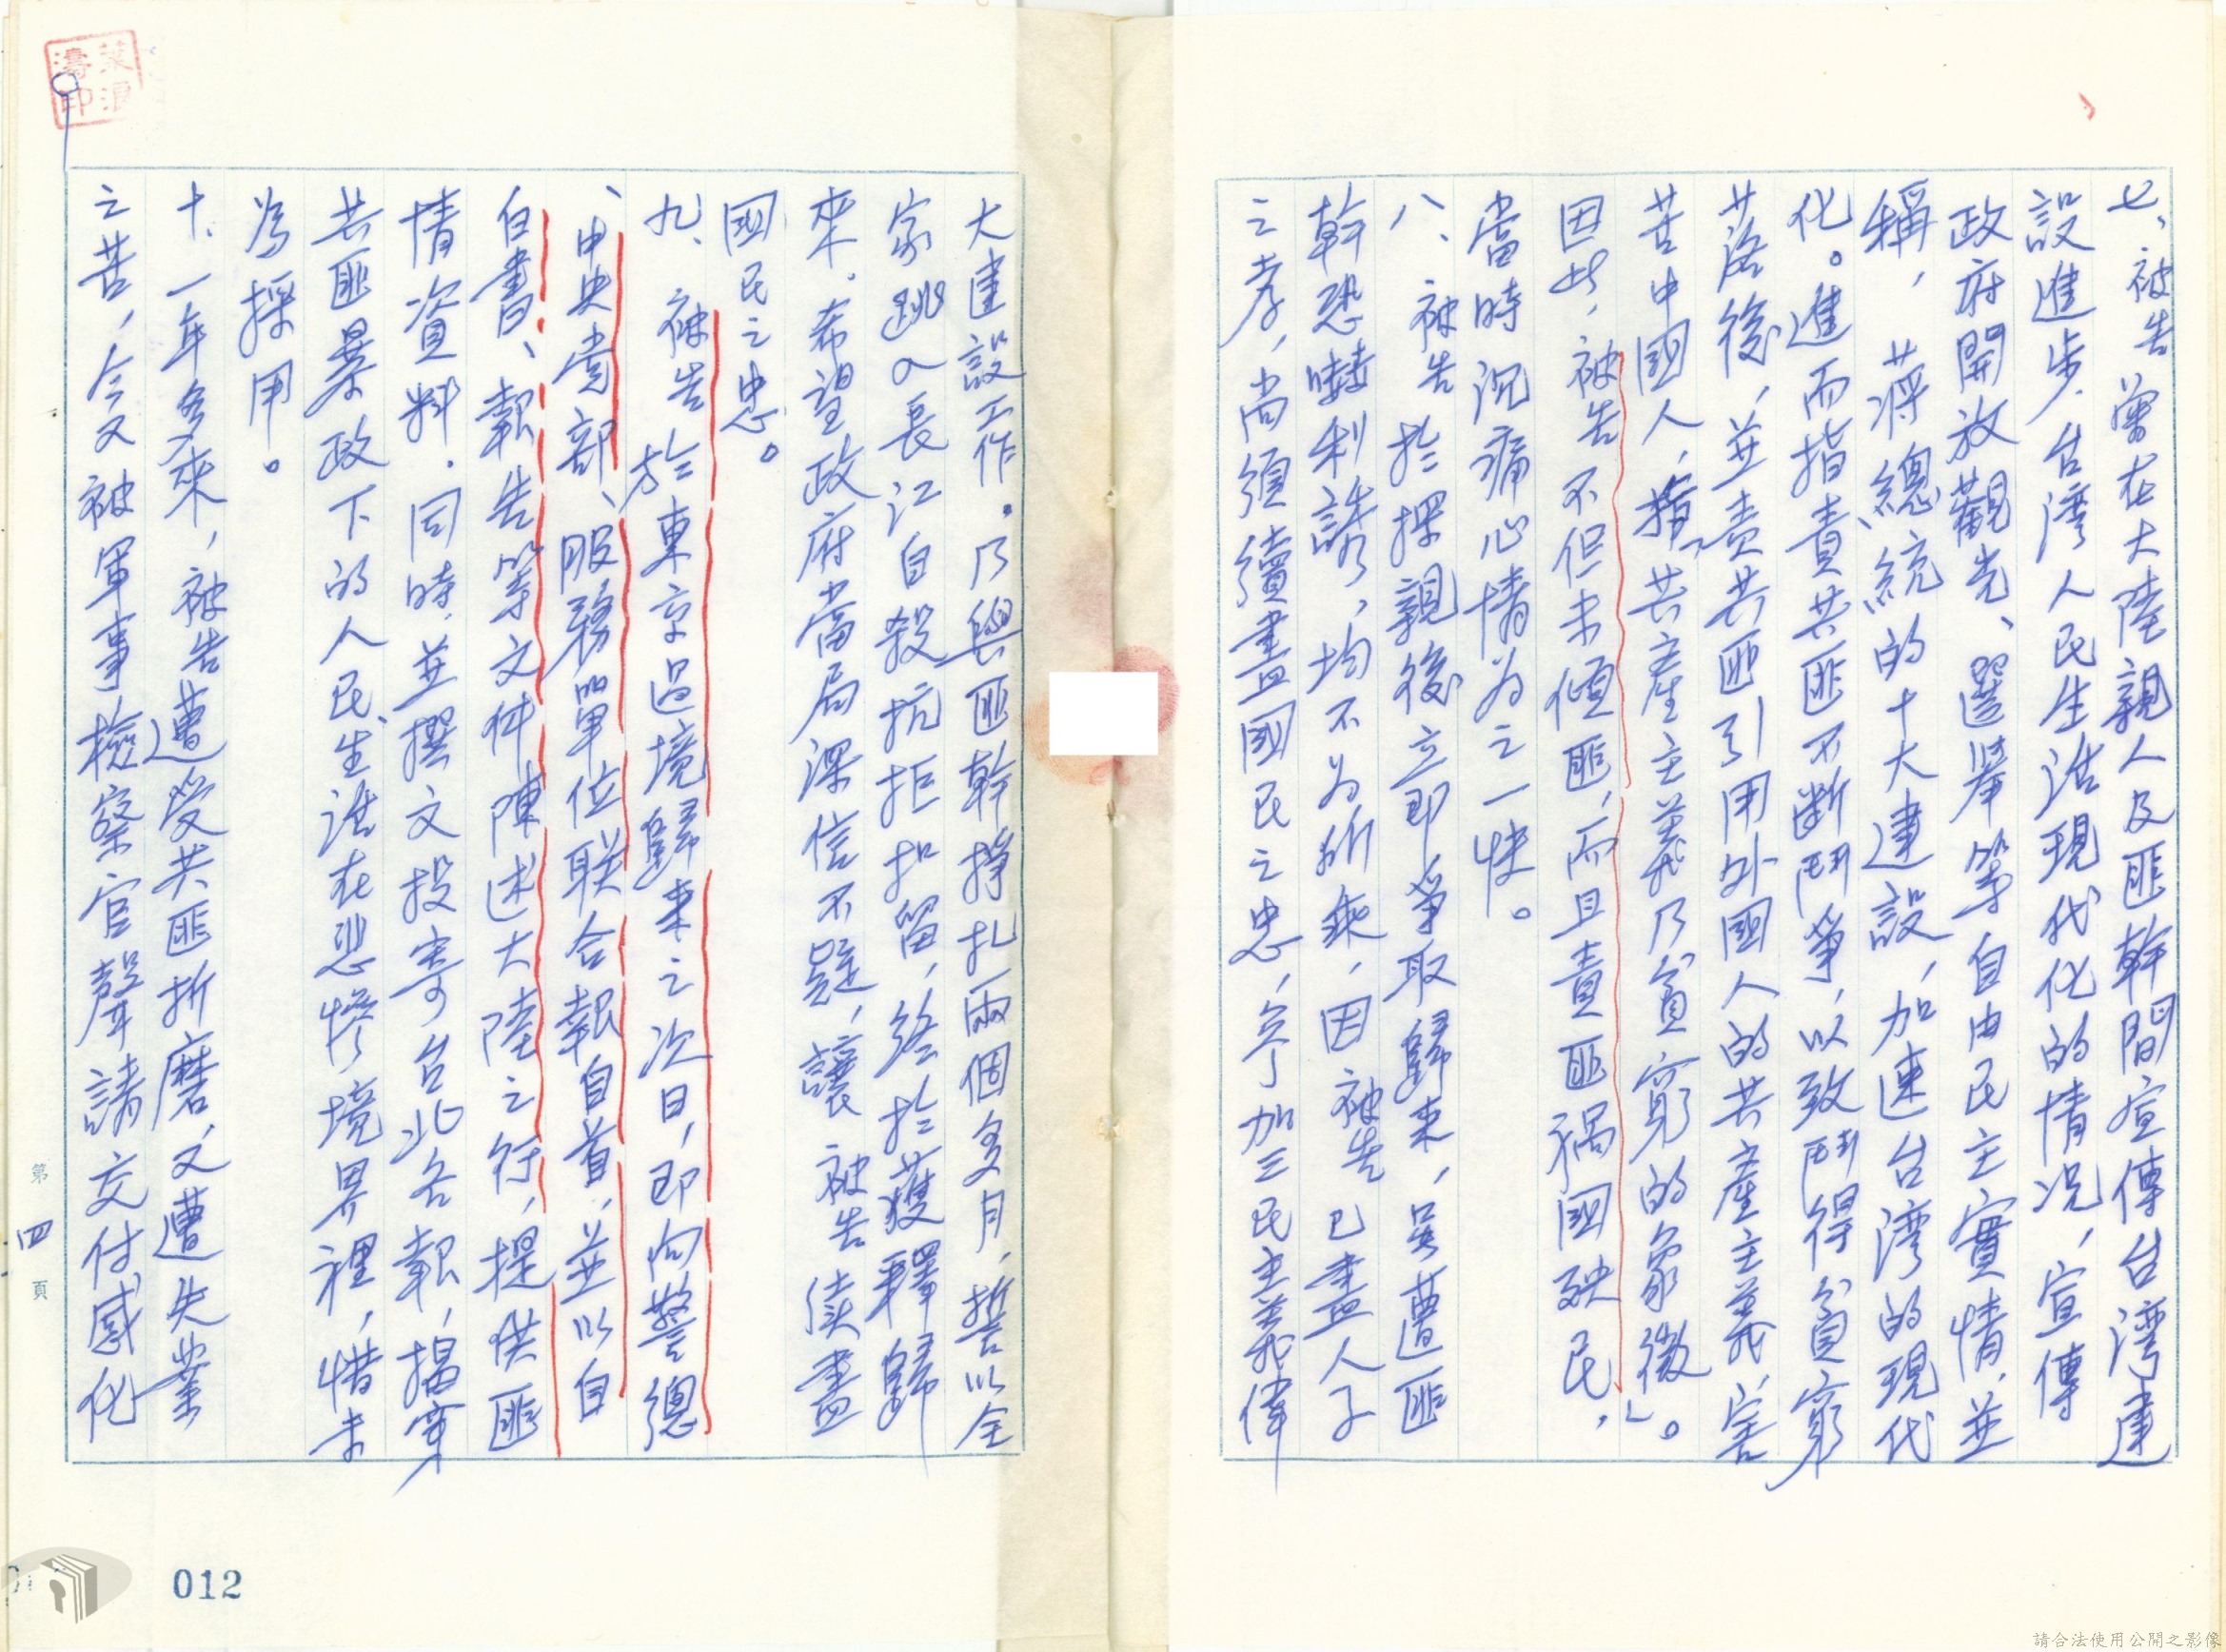 七、被告曾在大陸親人及匪幹間宣傳台湾建
設進步、台湾人民生活現代化的情况，宣傳
政府開放觀光、選举等自由民主實情，並
稱，蔣總統的十大建設，加速台湾的現代
化。進而指責共匪不断鬥爭，以致鬥得貧窮
落後，並責共匪引用外國人的共産主義，害
苦中國人，共産主義乃貧窮的象徵」。
因此，被告不但未傾匪，而且責匪禍國殃民，
當時沉痛心情为之一快。
八、被告於探親後立即爭取歸来，吴遭匪
幹恐嚇利誘，均不为所乘，因被告已盡人子
之孝，尚須續盡國民之忠，参加三民主義偉
大建設工作。乃與匪幹掙扎兩個多月，誓以全
家跳入長江自殺抗拒扣留，終於獲釋歸
來。希望政府當局深信不疑，讓被告续盡
國民之忠。
九、被告於東京過境歸来之次日，即向警總
、中央党部、服務單位联合報自首，並以自
白書、報告等文件陳述大陸之行，提供匪
情資料。同時，並撰文投寄台北各報，揭穿
共匪暴政下的人民，生活在悲慘境界裡，惜未
为採用。
十、一年多來，被告遭受共匪折磨，又遭失業
之苦，今又被軍事檢察官聲請交付感化
第四頁
012
請合法使用公開之影像